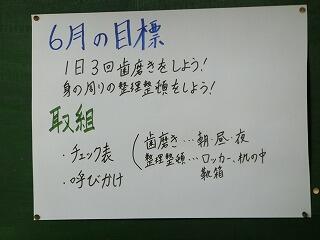 6月の目標
1日3回歯磨きをしよう!
身の周りの整理整頓をしよう!
取組
・チェック表
・呼びかけ
(歯磨き…朝・昼・夜
整理整頓…ロッカー、机の中
靴箱